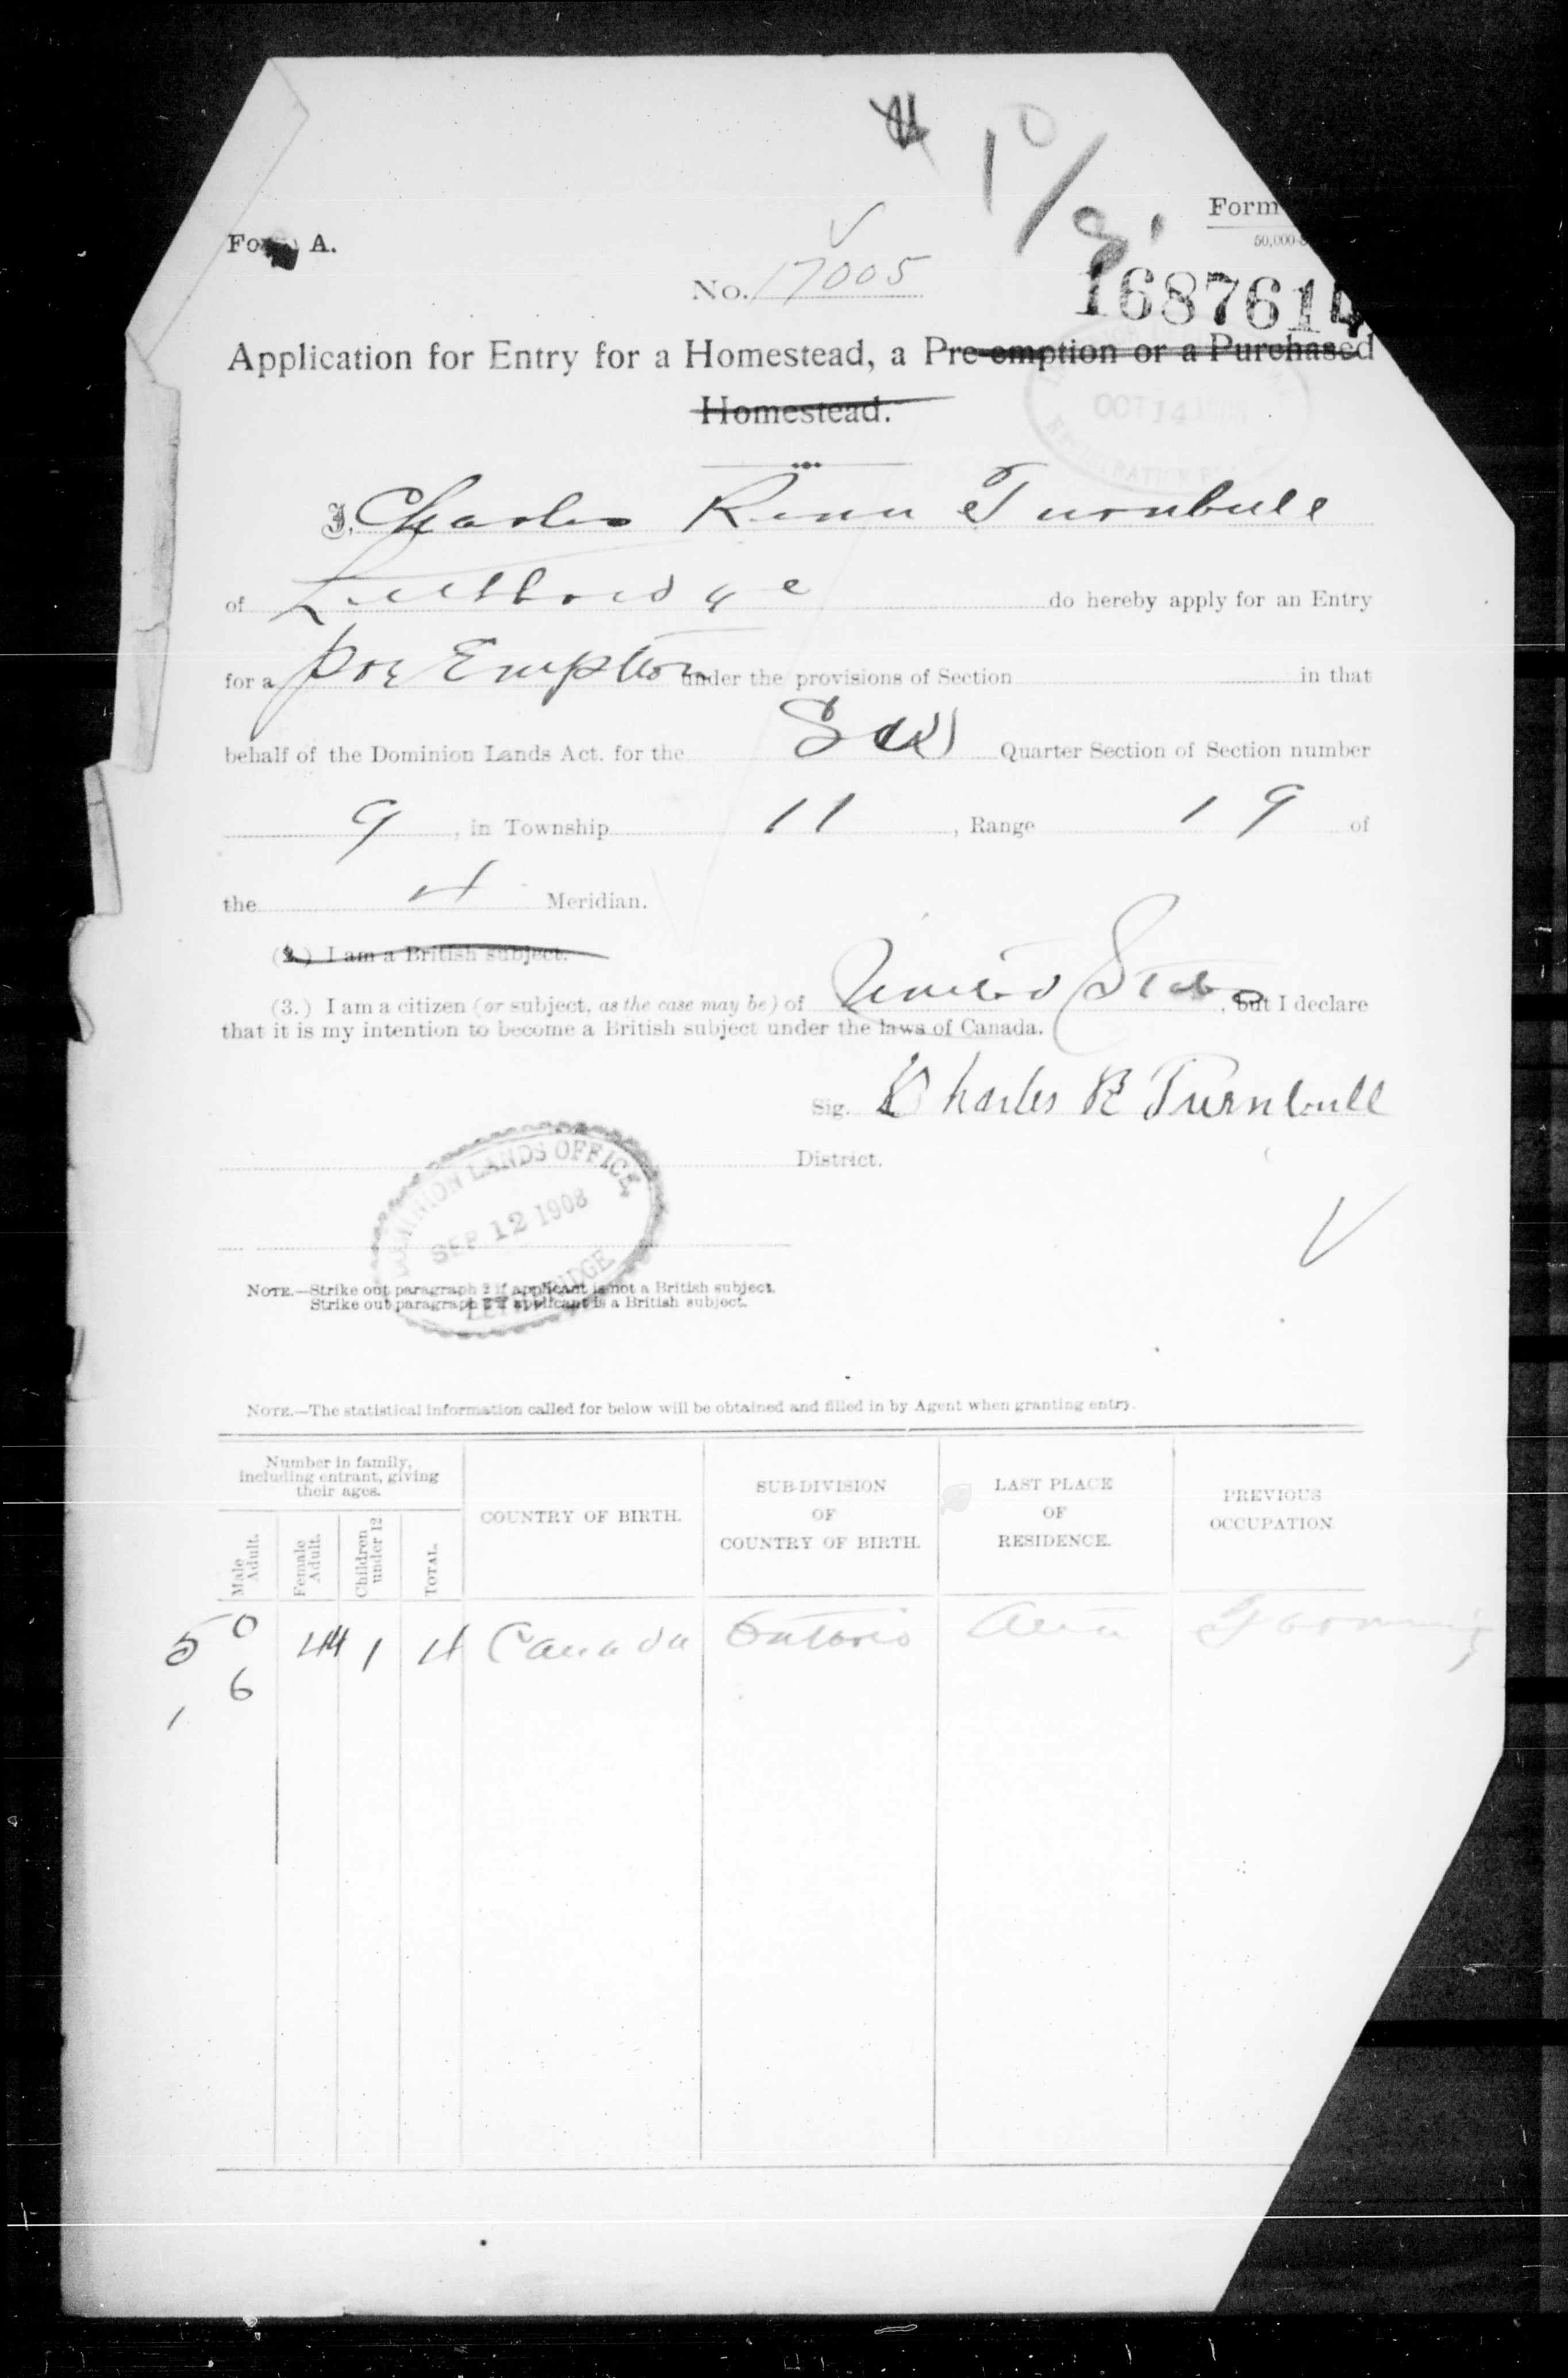 10/8.
Form
50,000-
Form A.
No. 17005
1687614
Application for Entry for a Homestead, a Pre-emption or a Purchased
Homestead.
OCT 14
REGISTRATION
I, Charles Renn Turnbull
of Lethbridge do hereby apply for an Entry
for a Pre Emption under the provisions of Section in that
behalf of the Dominion Lands Act, for the SW Quarter Section of Section number
9, in Township 11, Range 19 of
the 4 Meridian.
(2.) I am a British subject.
(3.) I am a citizen (or subject, as the case may be) of United States, but I declare
that it is my intention to become a British subject under the laws of Canada.
Sig. Charles R Turnbull
District.
DOMINION LANDS OFFICE,
SEP 12 1908
LETHBRIDGE
NOTE.—Strike out paragraph 2 if applicant is not a British subject.
Strike out paragraph 3 if applicant is a British subject.
NOTE.—The statistical information called for below will be obtained and filled in by Agent when granting entry.
Number in family,
including entrant, giving
their ages.
Male Adult.
Female Adult.
Children under 12
TOTAL.
COUNTRY OF BIRTH.
SUB-DIVISION
OF
COUNTRY OF BIRTH.
LAST PLACE
OF
RESIDENCE.
PREVIOUS
OCCUPATION
50 44 1 4 Canada Ontario Alta Farming
16